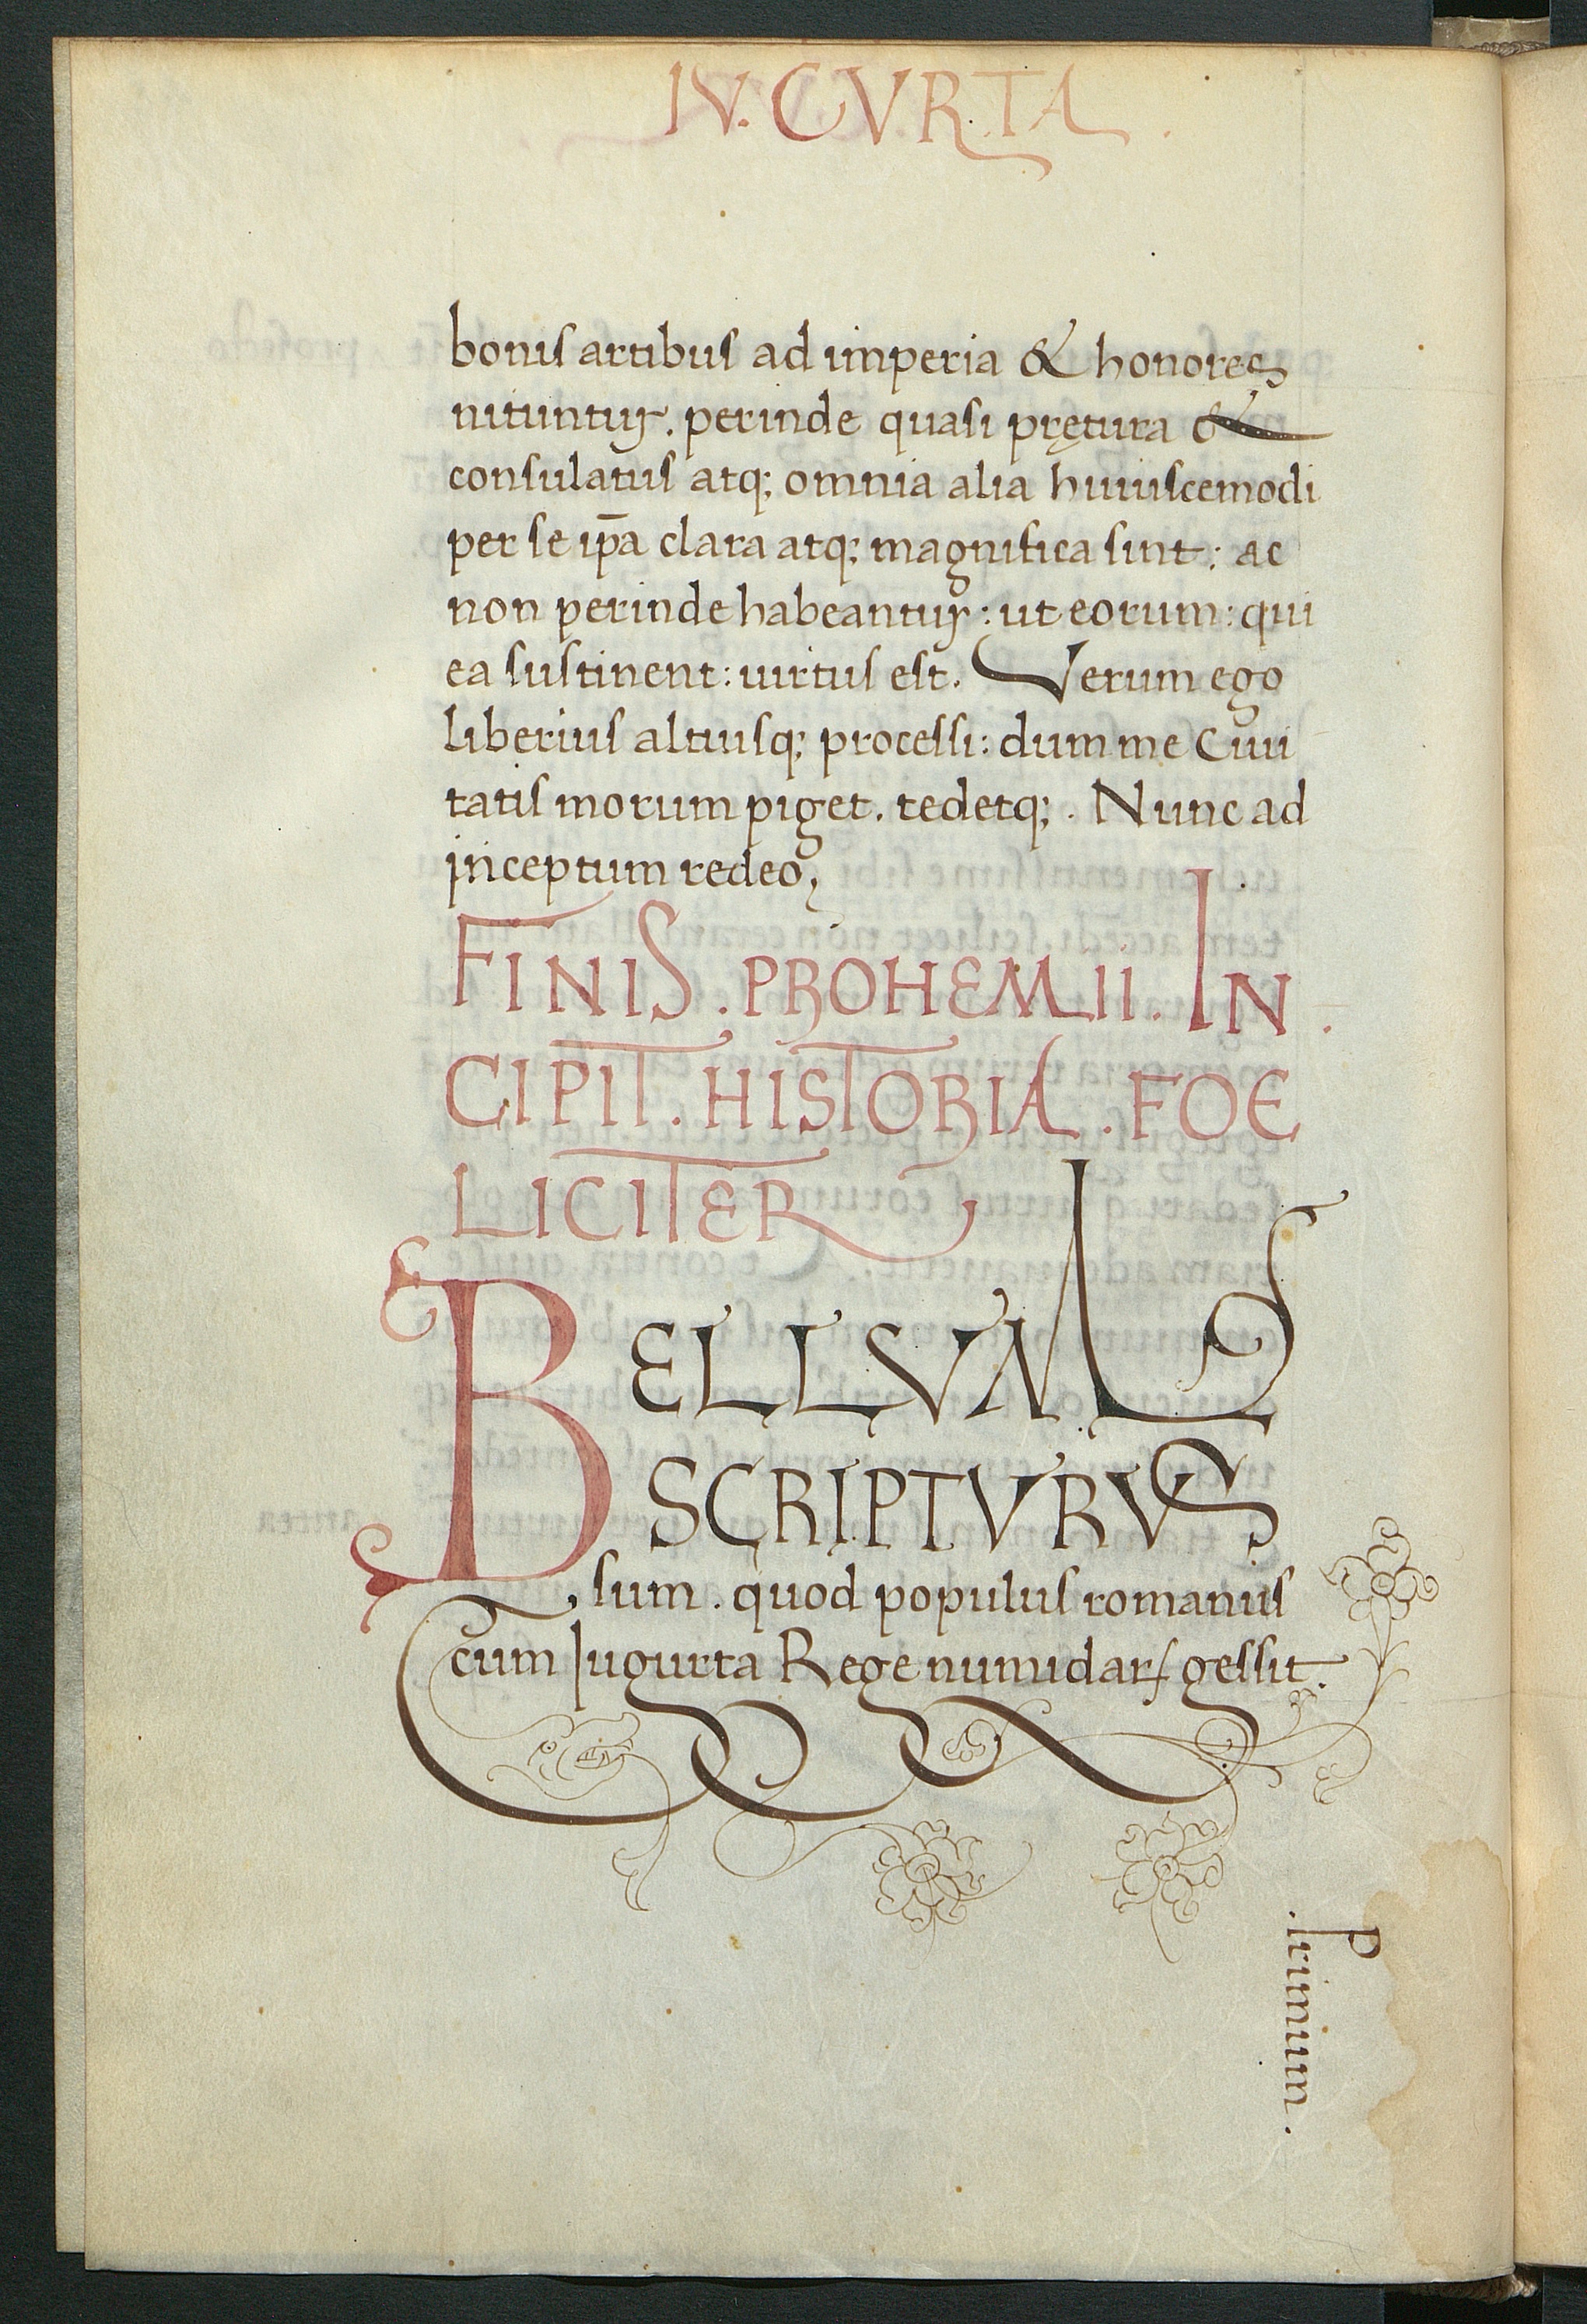 IV. CVRTA
bonis artibus ad imperia & honores
nituntur. perinde quasi prętura &
consulatus atq; omnia alia huiuscemodi
per se ip̄a clara atq; magnifica sint: ac
non perinde habeantur: ut eorum: qui
ea sustinent: uirtus est. Verum ego
liberius altiusq; processi: dum me Ciui
tatis morum piget. tedetq;. Nunc ad
inceptum redeo,
FINIS. PROHEMII. IN.
CIPIT. HISTORIA. FOE
LICITER
BELLVM
SCRIPTVRVS
sum. quod populus romanus
cum Iugurta Rege numidarꝝ gessit.
.Primum.